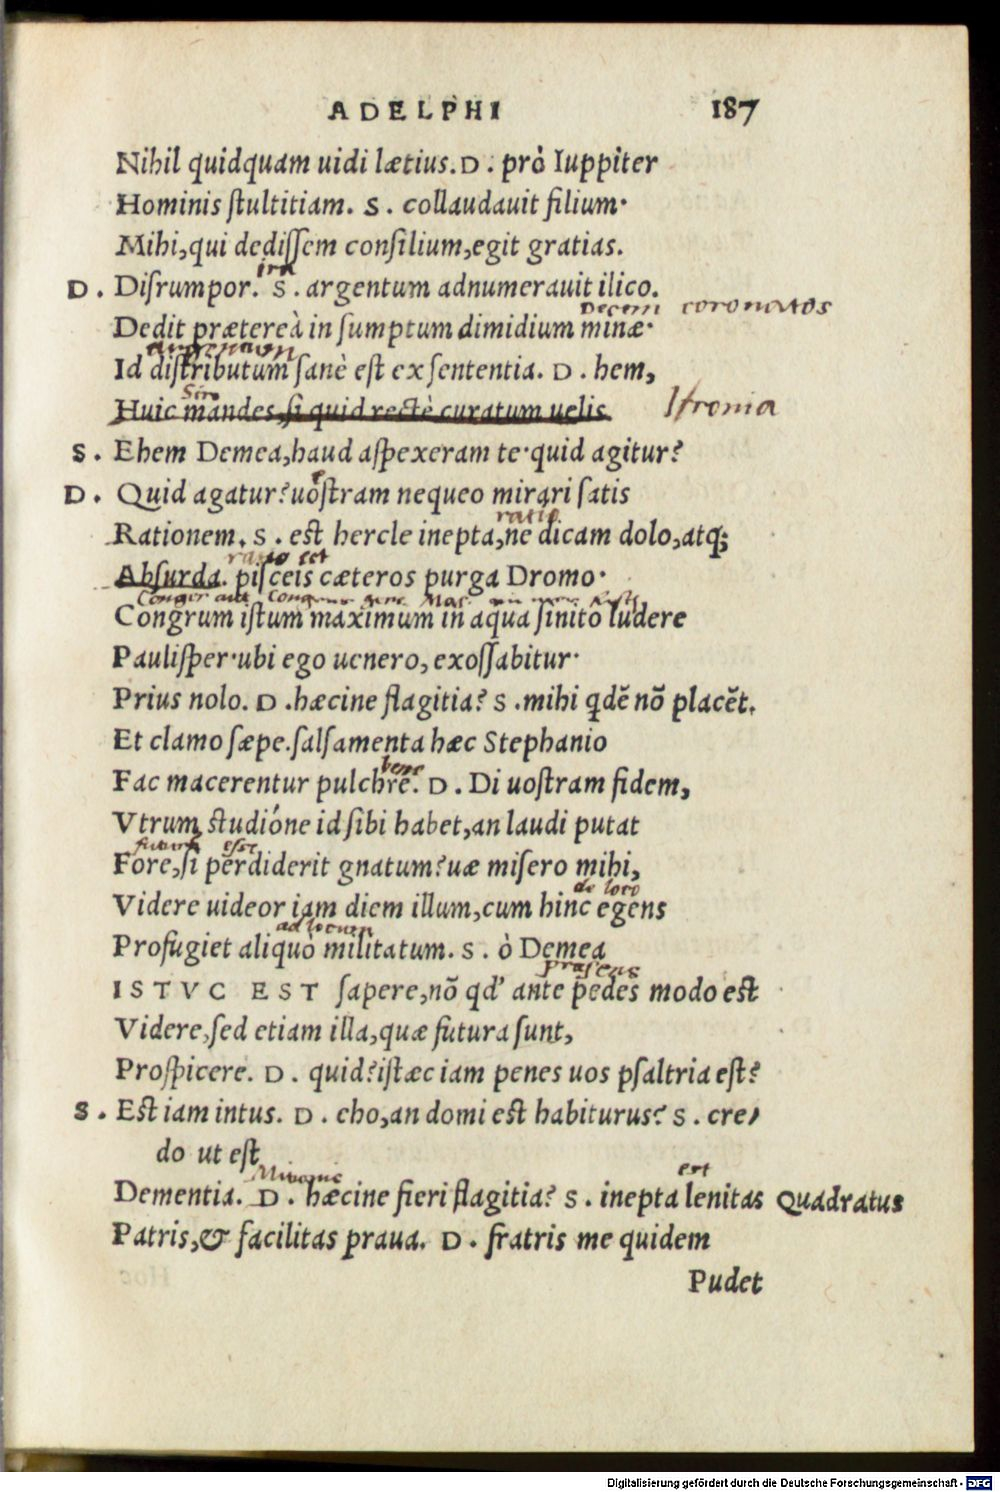 ADELPHI 187
Nihil quidquam uidi lætius. D. prò Iuppiter
Hominis stultitiam. S. collaudauit filium·
Mihi, qui dedissem consilium, egit gratias.
ira
D. Disrumpor. S. argentum adnumerauit ilico.
Decem coronatos
Dedit prætereà in sumptum dimidium minæ·
argentum
Id distributum sanè est ex sententia. D. hem,
Siro
Huic mandes, si quid rectè curatum uelis Ironia
S. Ehem Demea, haud aspexeram te·quid agitur?
e
D. Quid agatur? uostram nequeo mirari satis
ratio
Rationem. S. est hercle inepta, ne dicam dolo, atq;
ratio est
Absurda. pisceis cæteros purga Dromo·
Conger aut Congrus gene. Mas.
Congrum istum maximum in aqua sinito ludere
Paulisper·ubi ego uenero, exossabitur·
Prius nolo. D. hæcine flagitia? S. mihi qdē nō placēt.
Et clamo sæpe. salsamenta hæc Stephanio
bene
Fac macerentur pulchrè. D. Di uostram fidem,
Vtrum studióne id sibi habet, an laudi putat
futurum esse
Fore, si perdiderit gnatum? uæ misero mihi,
de loco
Videre uideor iam diem illum, cum hinc egens
ad locum
Profugiet aliquo militatum. S. ò Demea
præsens
ISTVC EST sapere, nō qd' ante pedes modo est
Videre, sed etiam illa, quæ futura sunt,
Prospicere. D. quid? istæc iam penes uos psaltria est?
S. Est iam intus. D. eho, an domi est habiturus? S. cre/
do ut est
est
Dementia. D. hæcine fieri flagitia? S. inepta lenitas Quadratus
Patris, & facilitas praua. D. fratris me quidem
Pudet
Digitalisierung gefördert durch die Deutsche Forschungsgemeinschaft - DFG